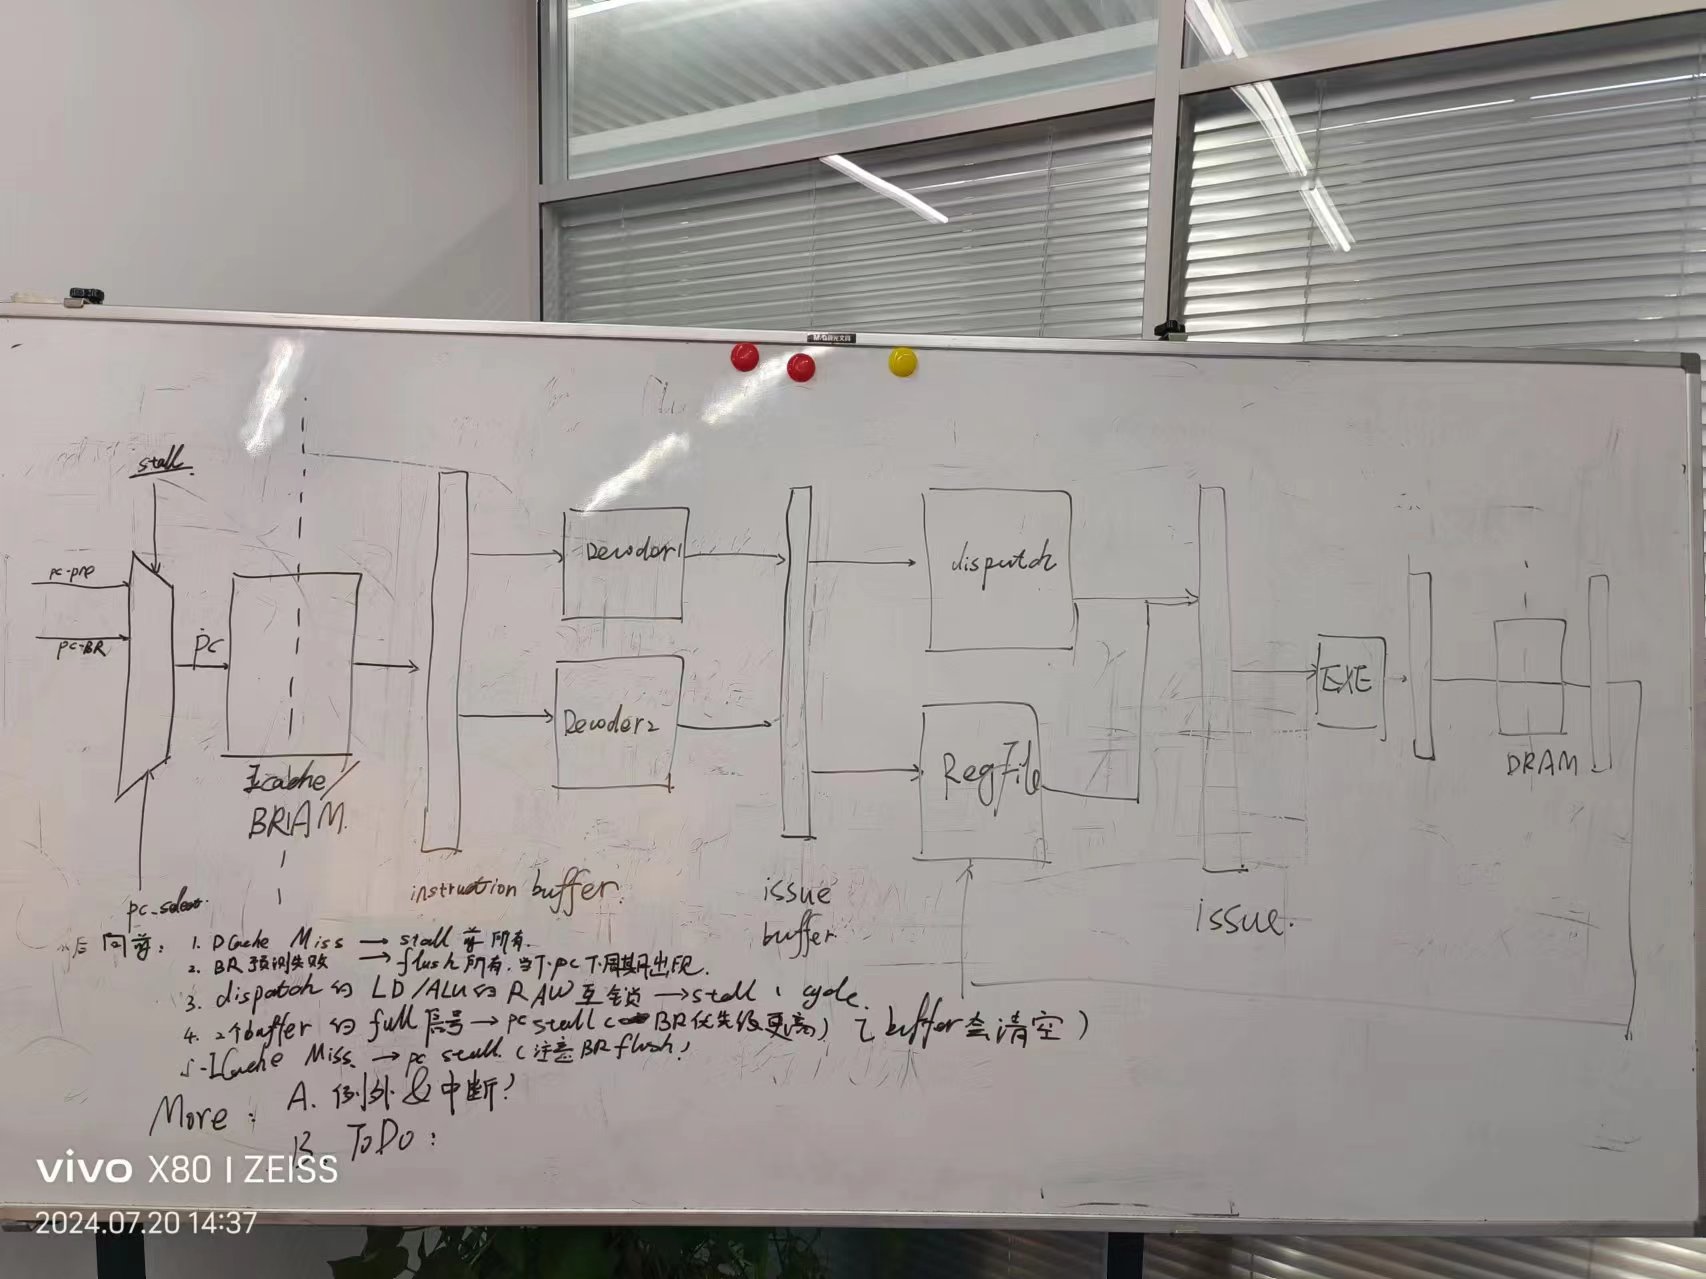 M&G 晨光文具
stall
pc-pre
pc-BR
PC
Icache/
BRAM.
pc_select
instruction buffer.
Decoder1
Decoder2
issue
buffer
dispatch
RegFile
issue.
EXE
DRAM
后向前:
1. DCache Miss → stall 前所有.
2. BR 预测失败 → flush 所有. 当下pc下周期出现.
3. dispatch 的 LD/ALU的 RAW 互锁 → stall 1 cycle.
4. 2个buffer 的 full 信号 → pc stall ( BR优先级更高) ( buffer会清空 )
5. ICache Miss → pc stall. (注意BR flush!
More: A. 例外 & 中断?
B. ToDo:
vivo X80 | ZEISS
2024.07.20 14:37